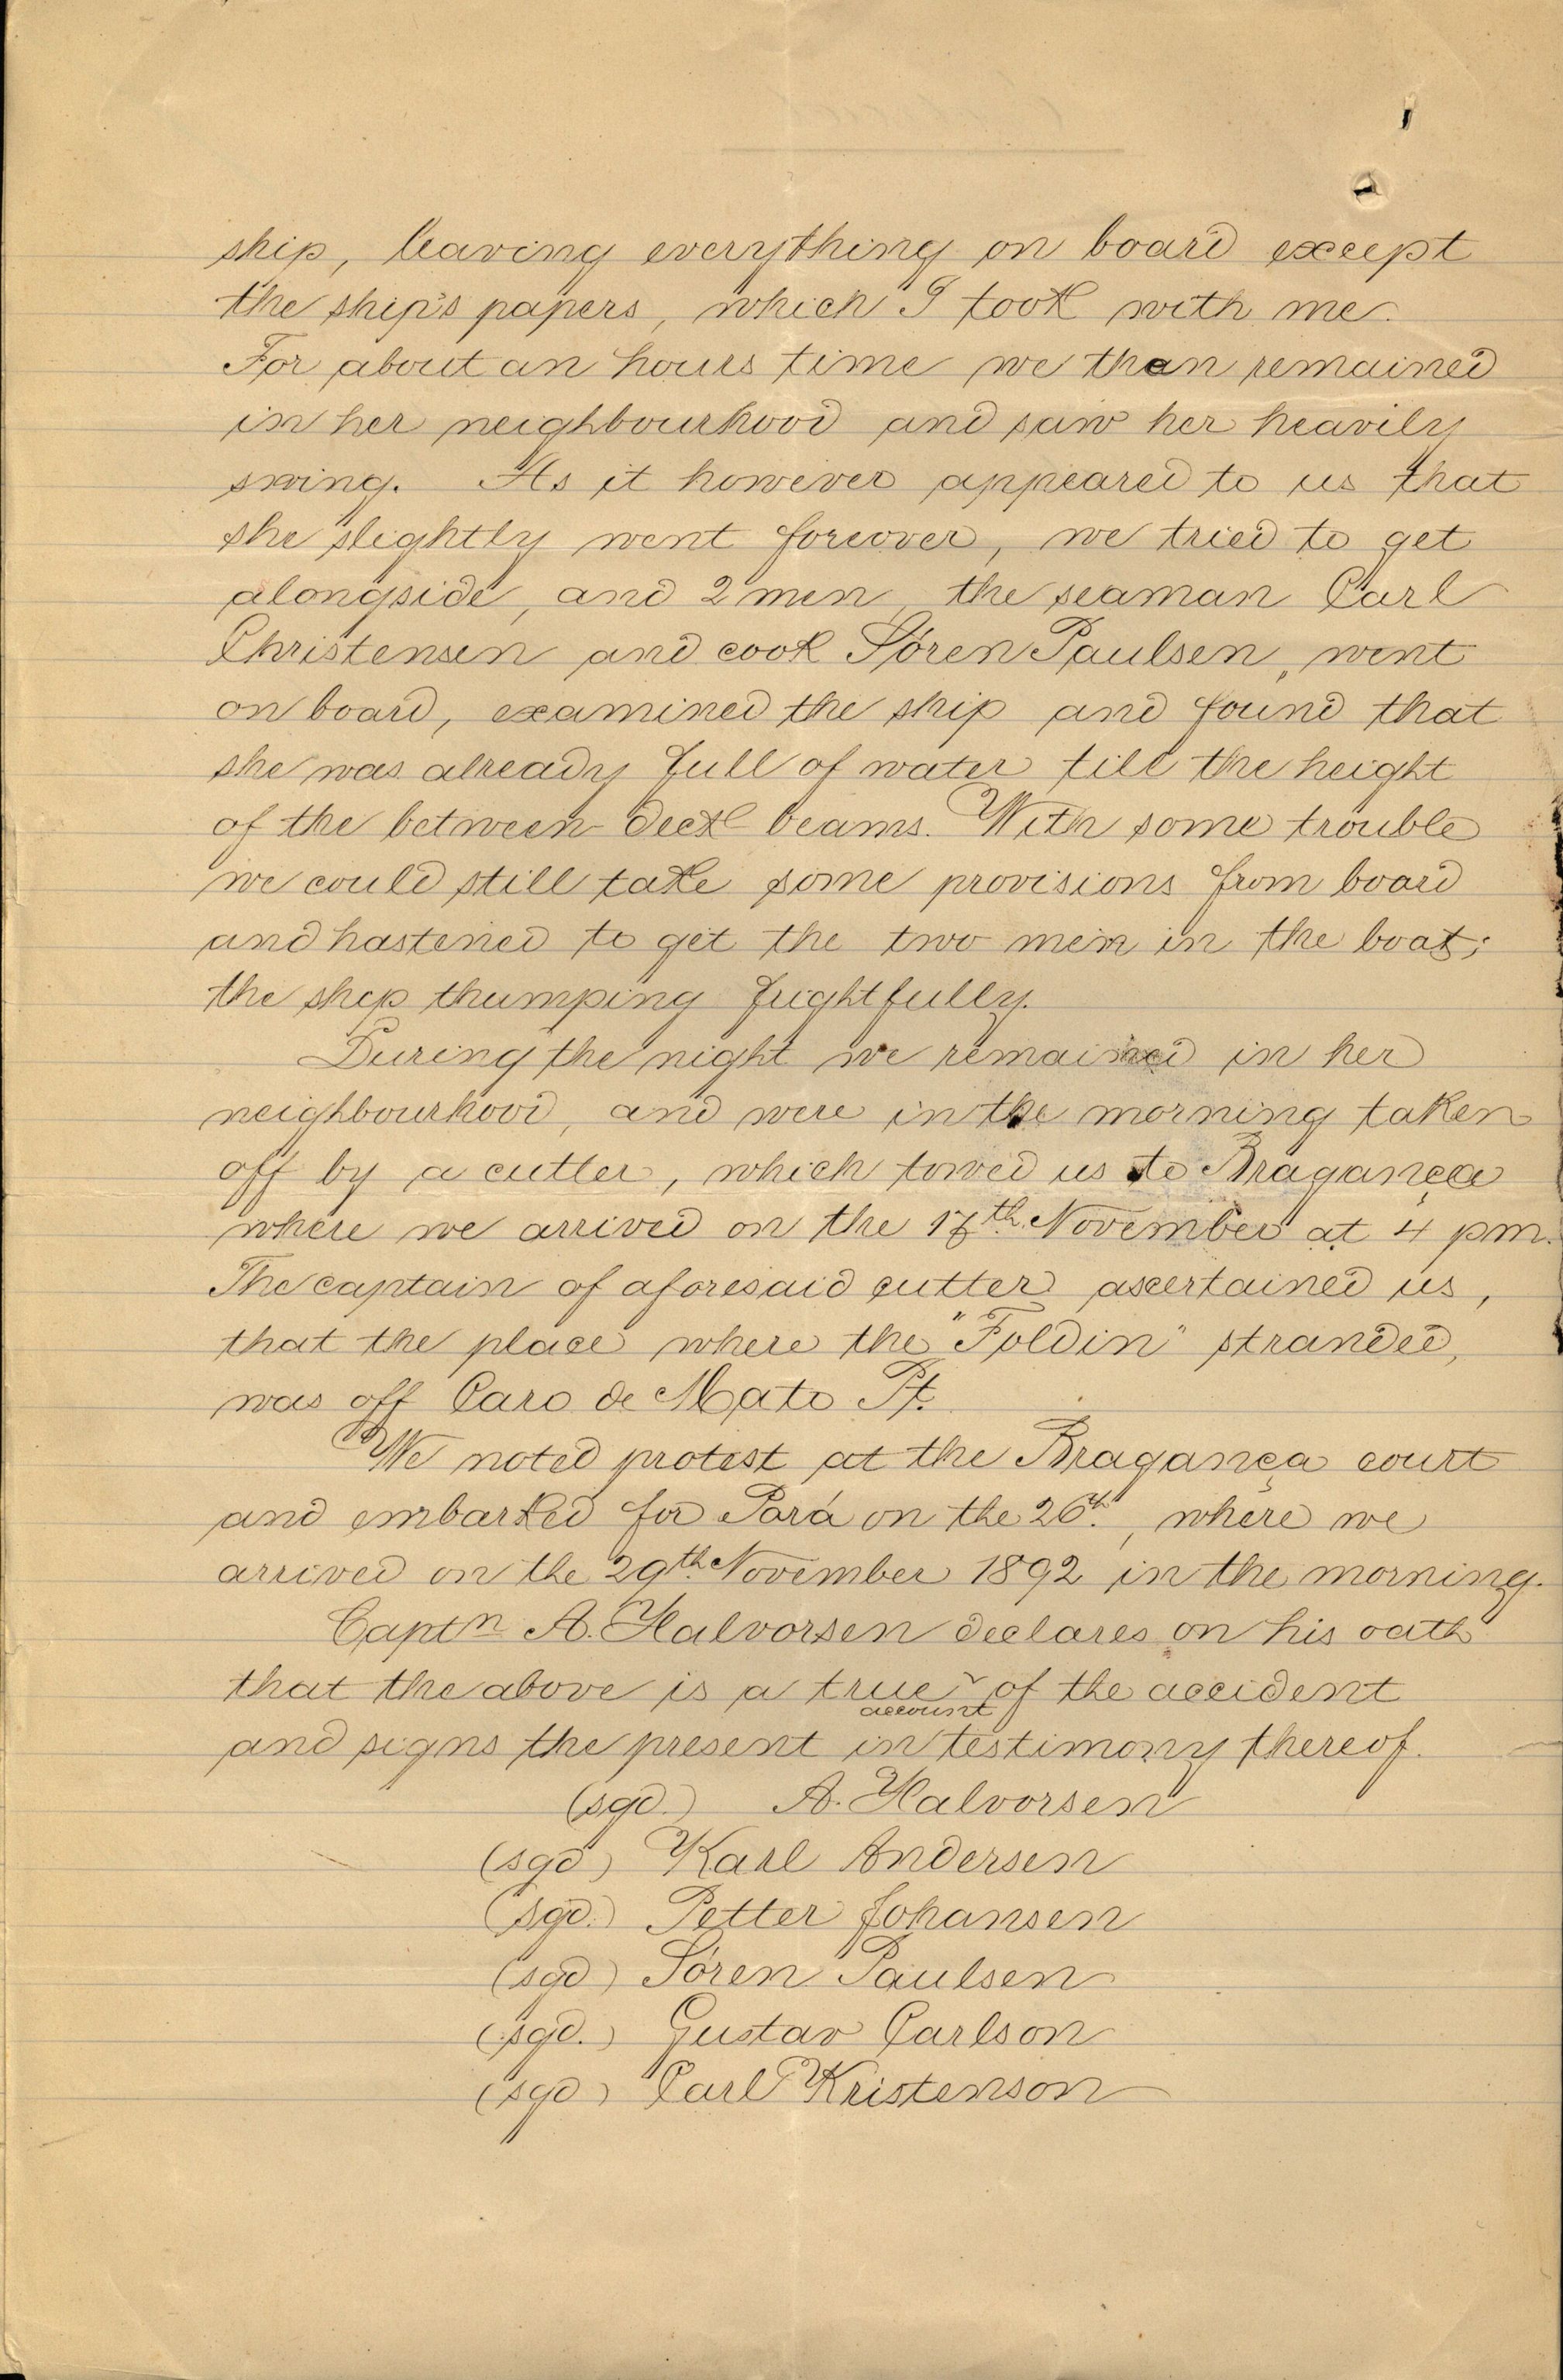 ship, leaving everything on board except
the ship's papers, which I took with me.
For about an hours time we than remained
in her neighbourhood and saw her heavily
swing. As it however appeared to us that
she slightly went foreover, we tried to get
alongside, and 2 men, the seaman Carl
Christensen and cook Sören Paulsen, went
on board, examined the ship and found that
she was already full of water till the height
of the between deck beams. With some trouble
we could still take some provisions from board
and hastened to get the two men in the boat;
the ship thumping frightfully.
During the night we remained in her
neighbourhood, and were in the morning taken
off by a cutter, which towed us to Bragança
where we arrived on the November at 4 pm.
The captain of aforesaid cutter ascertained us,
that the place where the "Foldin" stranded,
was off Caro de Mato Pt.
We noted protest at the Bragança court
and embarked for Pará on the 26th, where we
arrived on the 29th November 1892 in the morning.
Captn A. Halvorsen declares on his oath
that the above is a true account of the accident
and signs the present in testimony thereof.
(sgd.) A. Halvorsen
(sgd) Karl Andersen
(sgd.) Petter Johansen
(sgd) Sören Paulsen
(sgd.) Gustav Carlson
(sgd) Carl Kristenson